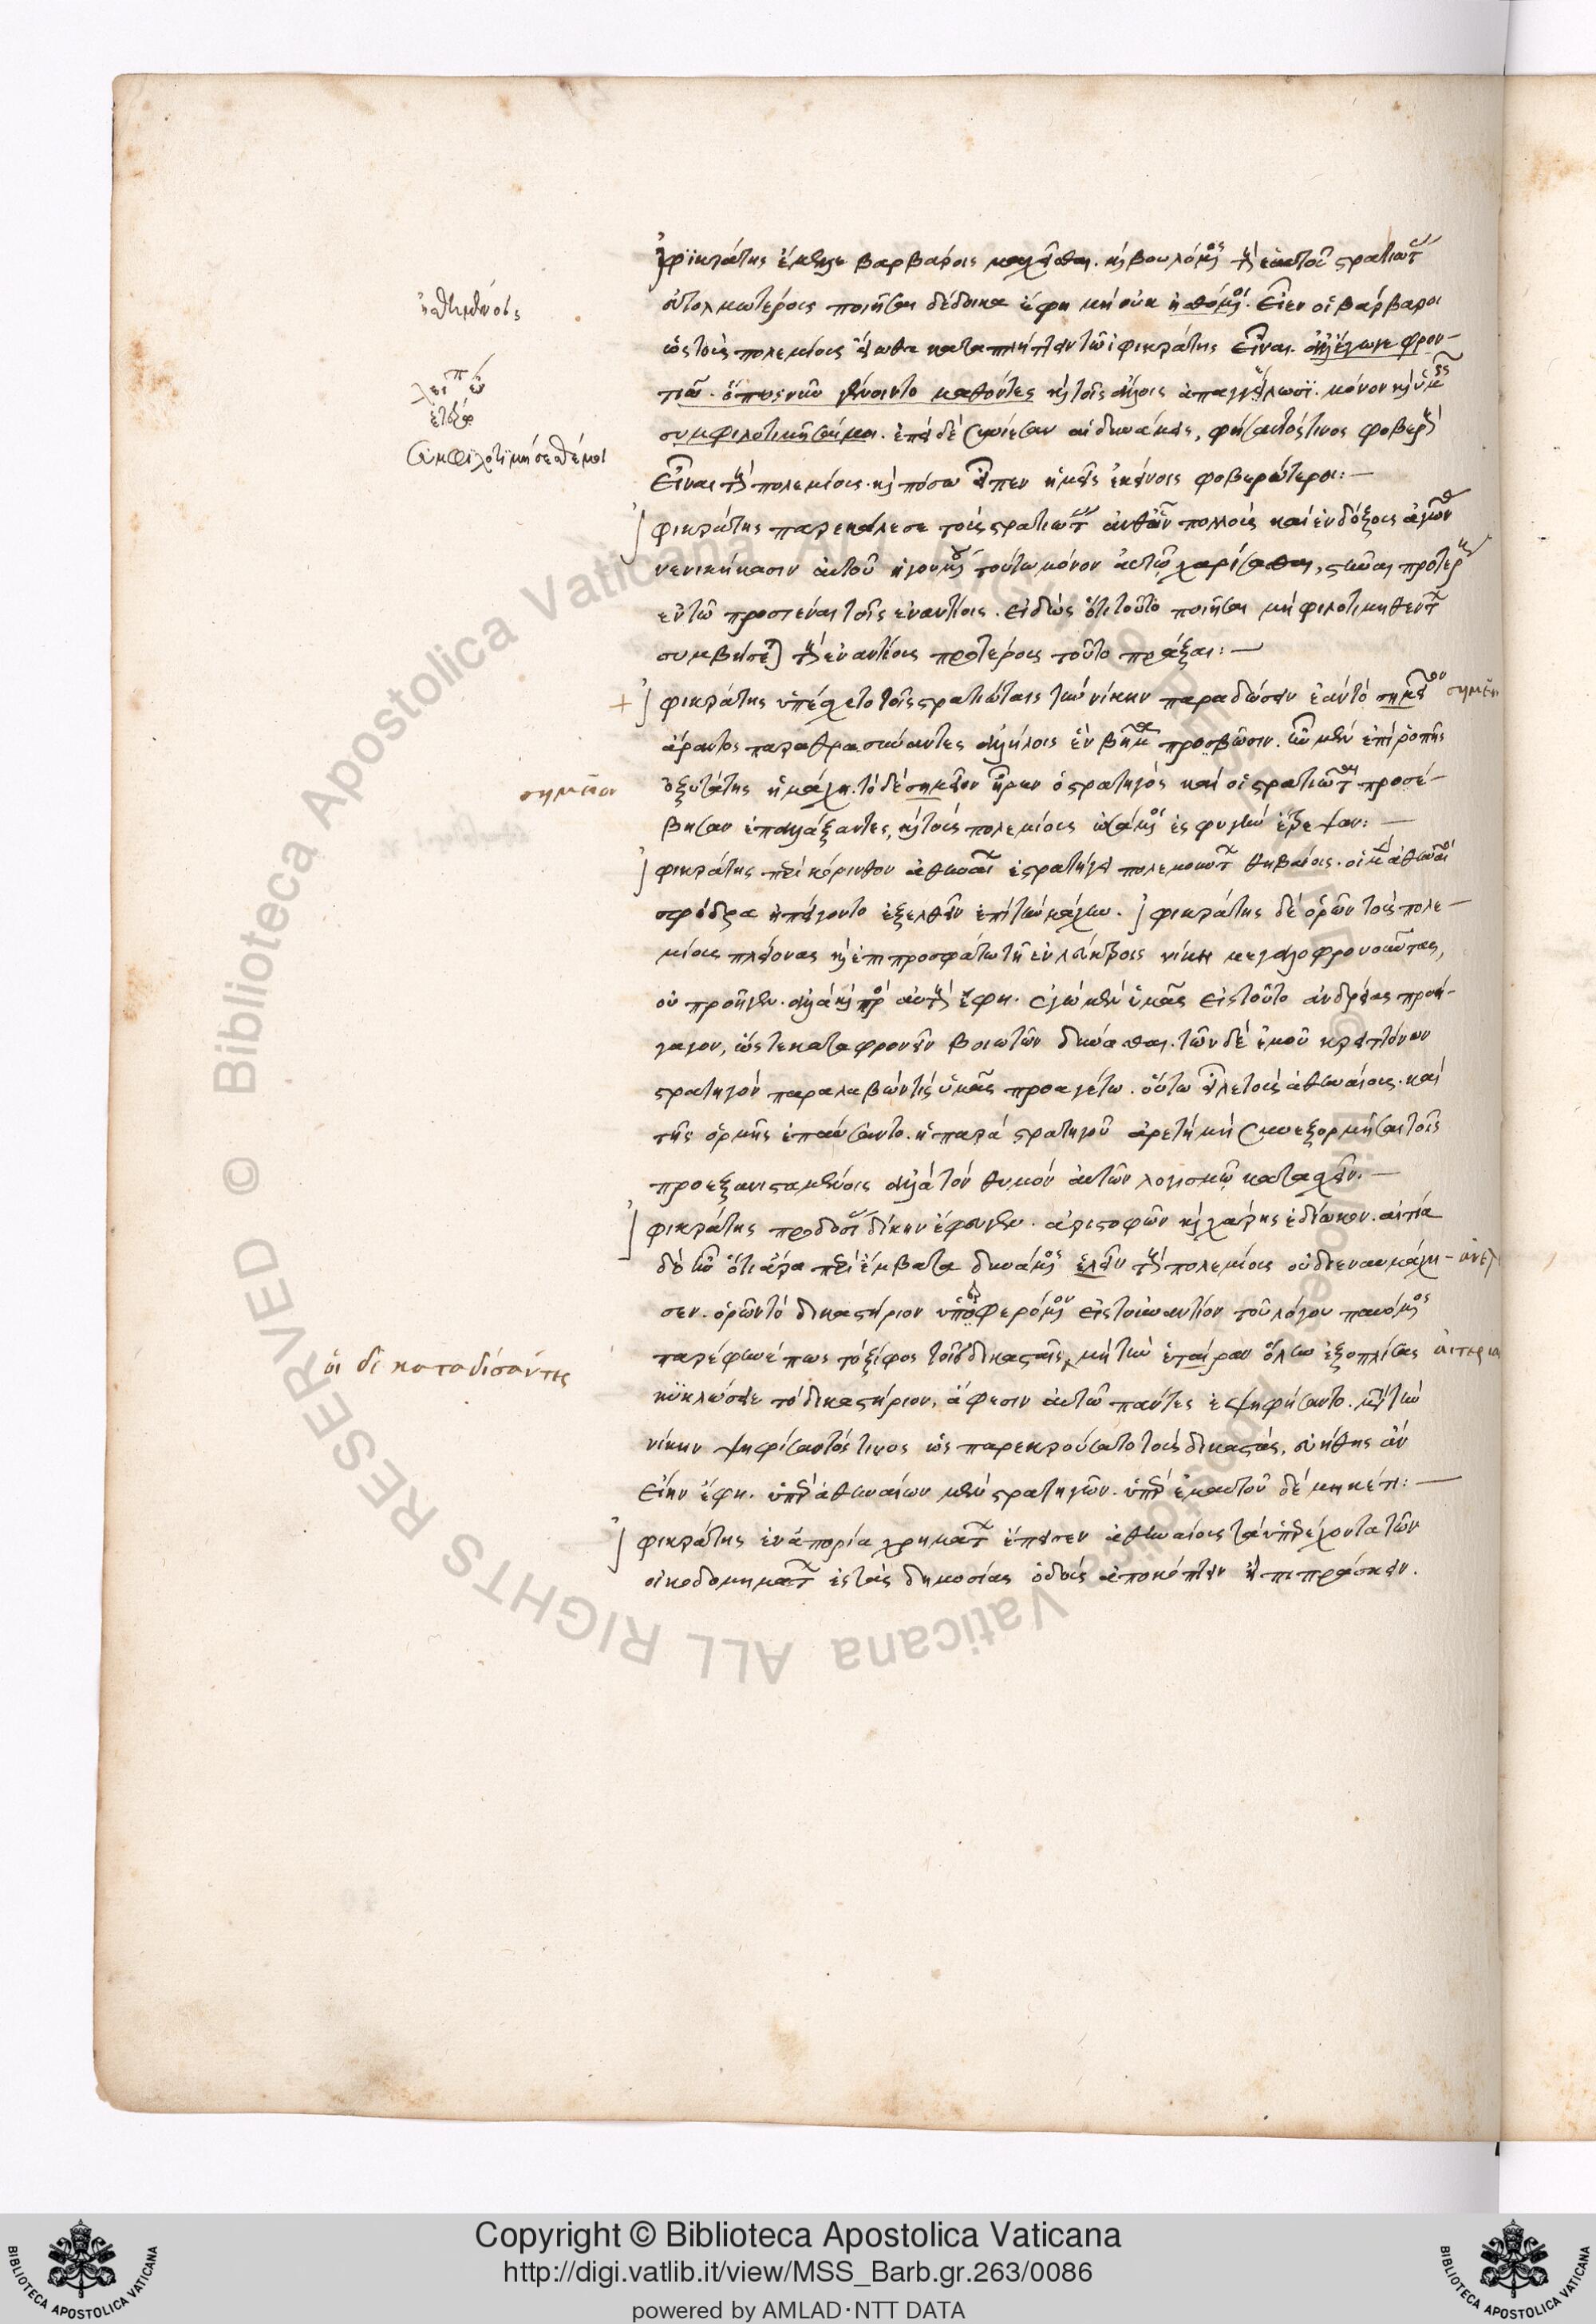 Ἰφικράτης ἔμελλε βαρβάροις μάχεσθαι. καὶ βουλόμενος τοὺς ἑαυτοῦ στρατιώτας
εὐτολμωτέρους ποιῆσαι δέδοικα ἔφη μὴ οὐκ
ὡς τοὺς πολεμίους εἴωθε καταπλήττειν τῶ ἰφικράτης εἶναι. ἀλλ' ἔγωγε φρον-
τιῶ. ὅπως καὶ τοῖς ἄλλοις ἀπαγγέλλωσι. μόνον καὶ ὑμεῖς
συμφιλοτιμήσασθαί μοι. ἐπεὶ δὲ συνίεσαν αἱ δυνάμεις, φήσαντός τινος φοβεροὺς
εἶναι τοὺς πολεμίους. καὶ πόσω εἶπεν ἡμεῖς ἐκείνοις φοβερώτεροι:—
Ἰφικράτης παρεκάλεσε τοὺς στρατιώτας ἀνθ' ὧν πολλοὺς καὶ ἐνδόξους ἀγῶνας
νενικήκασιν αὐτοῦ ἡγουμένου τούτω μόνον αὐτῶ χαρίσασθαι, προτέρους
ἐν τῶ προσιέναι τοῖς ἐναντίοις. εἰδὼς ὅτι τοῦτο ποιῆσαι μὴ φιλοτιμηθέντων
συμβήσεται τοὺς ἐναντίους προτέρους τοῦτο πρᾶξαι:—
Ἰφικράτης ὑπέσχετο τοῖς στρατιώταις τὴν νίκην παραδώσειν ἐὰν τὸ σημεῖον σημεῖον
ἄραντος παραθρασύναντες ἀλλήλους ἓν βῆμα προσβῶσιν. ἦν μὲν ἐπὶ ῥοπῆς
σημεῖον
ὀξυτάτης ἡ μάχη. τὸ δὲ σημεῖον ἦρεν ὁ στρατηγὸς καὶ οἱ στρατιῶται προσέ-
βησαν ἐπαλαλάξαντες, καὶ τοὺς πολεμίους ὠσάμενοι ἐς φυγὴν ἔτρεψαν:—
Ἰφικράτης περὶ κόρινθον ἀθηναίοις ἐστρατήγει πολεμοῦντας θηβαίοις. οἱ μὲν ἀθηναῖοι
σφόδρα ἠπείγοντο ἐξελθεῖν ἐπὶ τὴν μάχην. Ἰφικράτης δὲ ὁρῶν τοὺς πολε-
μίους πλείονας καὶ ἐπὶ προσφάτω τῇ ἐν λεύκτροις νίκη μεγαλοφρονοῦντας,
οὐ προῆγεν. ἀλλὰ καὶ πρὸς αὐτοὺς ἔφη. ἐγὼ μὲν ὑμᾶς εἰς τοῦτο ἀνδρείας προή-
γαγον, ὥστε καταφρονεῖν βοιωτῶν δύνασθαι. τῶν δὲ ἐμοῦ κρειττόνων
στρατηγὸν παραλαβών τις ὑμᾶς προαγέτω. οὕτω εἷλε τοὺς ἀθηναίους. καὶ
τῆς ὁρμῆς ἐπαύσαντο. ἡ παρὰ στρατηγοῦ ἀρετὴ μὴ συνεξορμῆσαι τοῖς
προεξανισταμένοις ἀλλὰ τὸν θυμὸν αὐτῶν λογισμῶ κατασχεῖν.—
Ἰφικράτης προδοσίας δίκην ἔφευγεν. ἀριστοφῶν καὶ χάρης ἐδίωκον. αἰτία
δὲ ἦν ὅτι ἄρα περὶ ἔμβατα δυνάμενος ἑλεῖν τοὺς πολεμίους οὐ διεναυμάχη-
σεν. ὁρῶν τὸ δικαστήριον ὑποφερόμενον εἰς τοὐναντίον τοῦ λόγου παυόμενος
παρέφηνέ πως τὸ ξίφος τοῖς δικασταῖς, μὴ τὴν ἑταίραν ὅλην ἐξοπλίσας
οἱ δὲ καταδίσαντες
κυκλώσειε τὸ δικαστήριον, ἄφεσιν αὐτῶ πάντες ἐψηφίσαντο. μετὰ τὴν
νίκην ψηφίσαντός τινος ὡς παρεκρούσατο τοὺς δικαστάς, εὐήθης ἂν
εἴην ἔφη. ὑπὲρ ἀθηναίων μὲν στρατηγῶν. ὑπὲρ ἐμαυτοῦ δὲ μηκέτι:—
Ἰφικράτης ἐν ἀπορία χρημάτων ἔπεισεν ἀθηναίους τὰ ὑπερέχοντα τῶν
οἰκοδομημάτων ἐς τὰς δημοσίας ὁδοὺς ἀποκόπτειν ἢ πιπράσκειν.
Copyright © Biblioteca Apostolica Vaticana
http://digi.vatlib.it/view/MSS_Barb.gr.263/0086
powered by AMLAD·NTT DATA
BIBLIOTECA APOSTOLICA VATICANA
BIBLIOTECA APOSTOLICA VATICANA
© Biblioteca Apostolica Vaticana ALL RIGHTS RESERVED